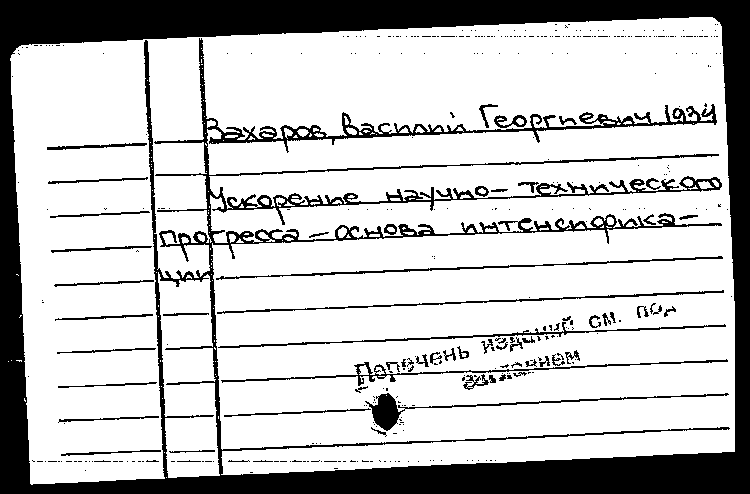 Захаров, Василий Георгиевич 1934
Ускорение научно-технического
прогресса - основа интенсифика-
ции
Перечень изданий см. под
заглавием